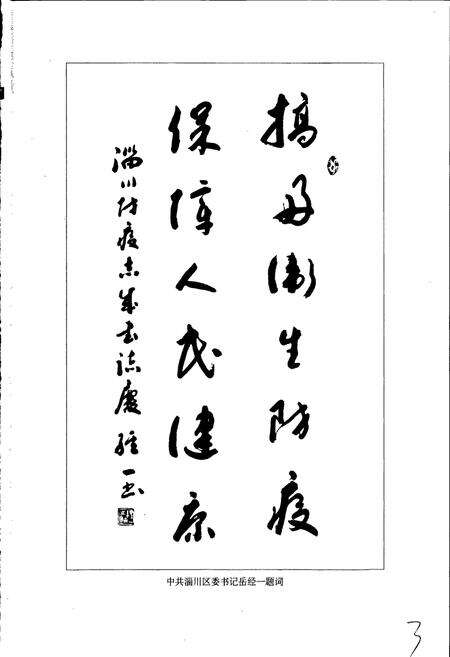 搞好衛生防疫
保障人民健康
淄川防疫志成书誌慶 經一书
中共淄川区委书记岳经一题词
3